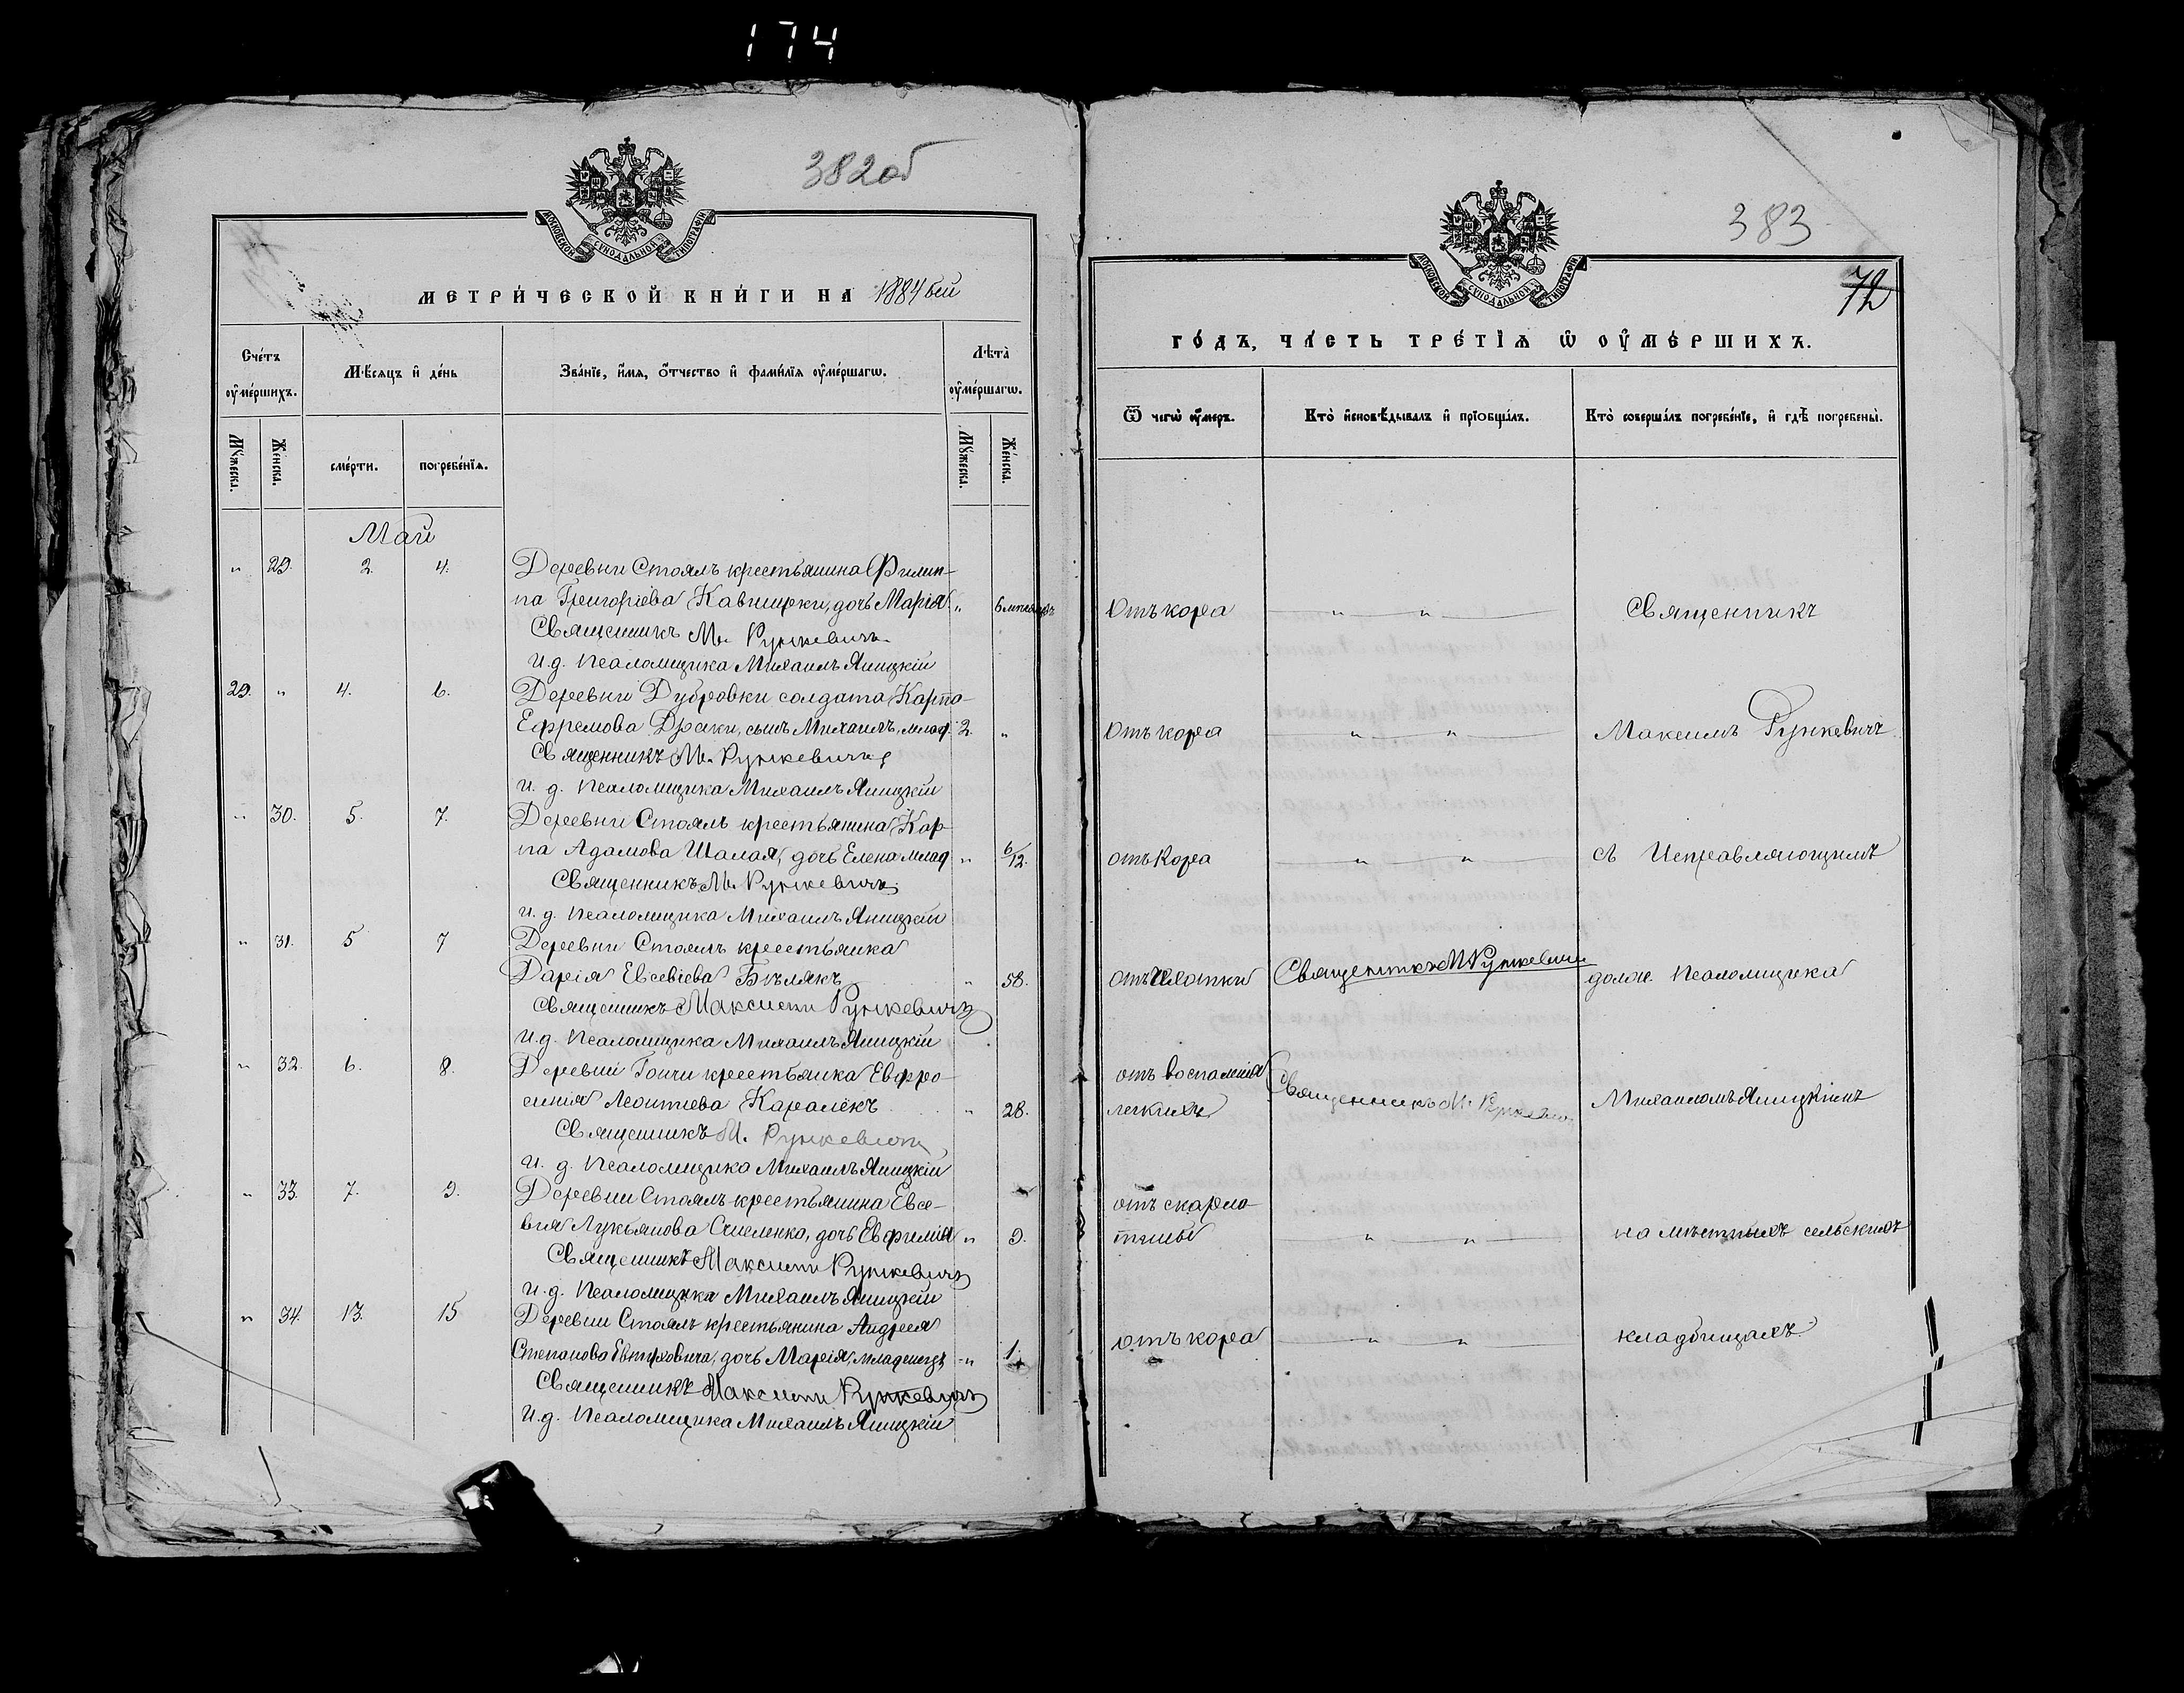 174
382об
МОСКОВСКОЙ СѴНОДАЛЬНОЙ ТИПОГРАФІИ
МЕТРИ́ЧЕСКОЙ КНИ́ГИ НА 1884 бей
Сче́тъ ᲂу҆ме́ршихъ.
Мѣ́сяцъ и҆ де́нь
Зва́нїе, и҆́мя, ѻ҆́тчество и҆ фами́лїя ᲂу҆ме́ршагѡ.
Лѣта̀ ᲂу҆ме́ршагѡ.
Мꙋ́жеска.
Же́нска.
сме́рти.
погребе́нїя.
Мꙋ́жеска.
Же́нска.
Май
" 29. 2. 4. Деревни Стоялъ крестьянина Филип-
па Григоріева Кавцирки, дочь Марія. " 6 мѣсяцъ
Священникъ М. Рункевичъ
И.д. Псаломщика Михаилъ Яницкій
29. " 4. 6. Деревни Дубровки солдата Карпа
Ефремова Драки, сынъ Михаилъ, млад. 2. "
Священникъ М. Рункевичъ
И. д. Псаломщика Михаилъ Яницкій
" 30. 5. 7. Деревни Стоялъ крестьянина Кар-
па Адамова Шалая, дочь Елена млад. " 6/12.
Священникъ М. Рункевичъ
И. д. Псаломщика Михаилъ Яницкій
" 31. 5 7 Деревни Стоялъ крестьянка
Дарія Евсевіева Бѣлякъ " 58.
Священникъ Максимъ Рункевичъ
И.д. Псаломщика Михаилъ Яницкій
" 32. 6. 8. Деревни Гоичи крестьянка Евфро-
синія Леонтіева Каралёкъ " 28.
Священникъ М. Рункевичъ
И. д. Псаломщика Михаилъ Яницкій
" 33. 7. 9. Деревни Стоялъ крестьянина Евсе-
вія Лукьянова дочь Евфимія " 9.
Священникъ Максимъ Рункевичъ
И.д. Псаломщика Михаилъ Яницкій
" 34. 13. 15 Деревни Стоялъ крестьянина Андрея
Степанова дочь Марія, младенецъ " 1.
Священникъ Максимъ Рункевичъ
И.д. Псаломщика Михаилъ Яницкій
383
МОСКОВСКОЙ СѴНОДАЛЬНОЙ ТИПОГРАФІИ
72
ГО́ДЪ, ЧА́СТЬ ТРЕ́ТІѦ Ѡ҆ ОУ҆МЕ́РШИХЪ.
Ѿ чегѡ̀ ᲂу҆́меръ.
Кто̀ и҆сповѣ́дывалъ и҆ прїѻбща́лъ.
Кто̀ соверша́лъ погребе́нїе, и҆ гдѣ̀ погребены̀.
Отъ кора " " Священникъ
Отъ кора " " Максимъ Рункевичъ
отъ Кора " " съ Исправляющимъ
отъ Чахотки Священникъ М Рункевичъ долж. Псаломщика
отъ воспаленія
легкихъ Священникъ М. Рункевичъ Михаиломъ Яницкимъ
отъ скарла-
тины " " на мѣстныхъ сельскихъ
отъ кора " " кладбищахъ.